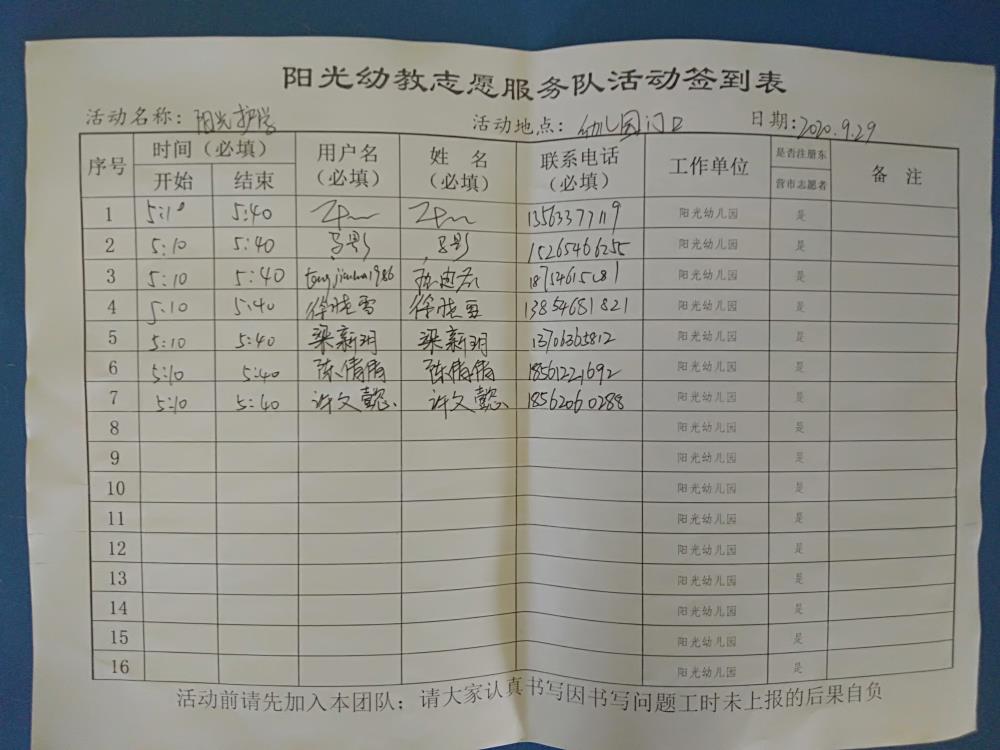 阳光幼教志愿服务队活动签到表
活动名称：阳光护学 活动地点：幼儿园门口 日期：2020.9.29
序号 时间（必填） 用户名（必填） 姓名（必填） 联系电话（必填） 工作单位 是否注册东营市志愿者 备注
开始 结束
1 5:10 5:40 13563377119 阳光幼儿园 是
2 5:10 5:40 吕影 吕影 15265466255 阳光幼儿园 是
3 5:10 5:40 阳光幼儿园 是
4 5:10 5:40 徐晓雪 徐晓雪 13854651821 阳光幼儿园 是
5 5:10 5:40 梁新玥 梁新玥 13706365812 阳光幼儿园 是
6 5:10 5:40 陈倩倩 陈倩倩 18561221692 阳光幼儿园 是
7 5:10 5:40 许文懿 许文懿 18562060288 阳光幼儿园 是
8 阳光幼儿园 是
9 阳光幼儿园 是
10 阳光幼儿园 是
11 阳光幼儿园 是
12 阳光幼儿园 是
13 阳光幼儿园 是
14 阳光幼儿园 是
15 阳光幼儿园 是
16 阳光幼儿园 是
活动前请先加入本团队；请大家认真书写因书写问题工时未上报的后果自负